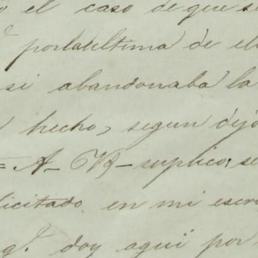 o el caso de que se
por la última de el
si abandonaba la
hecho, segun dijo
= A - V. - suplico, se
licitado en mi escri
g.e doy aqui por